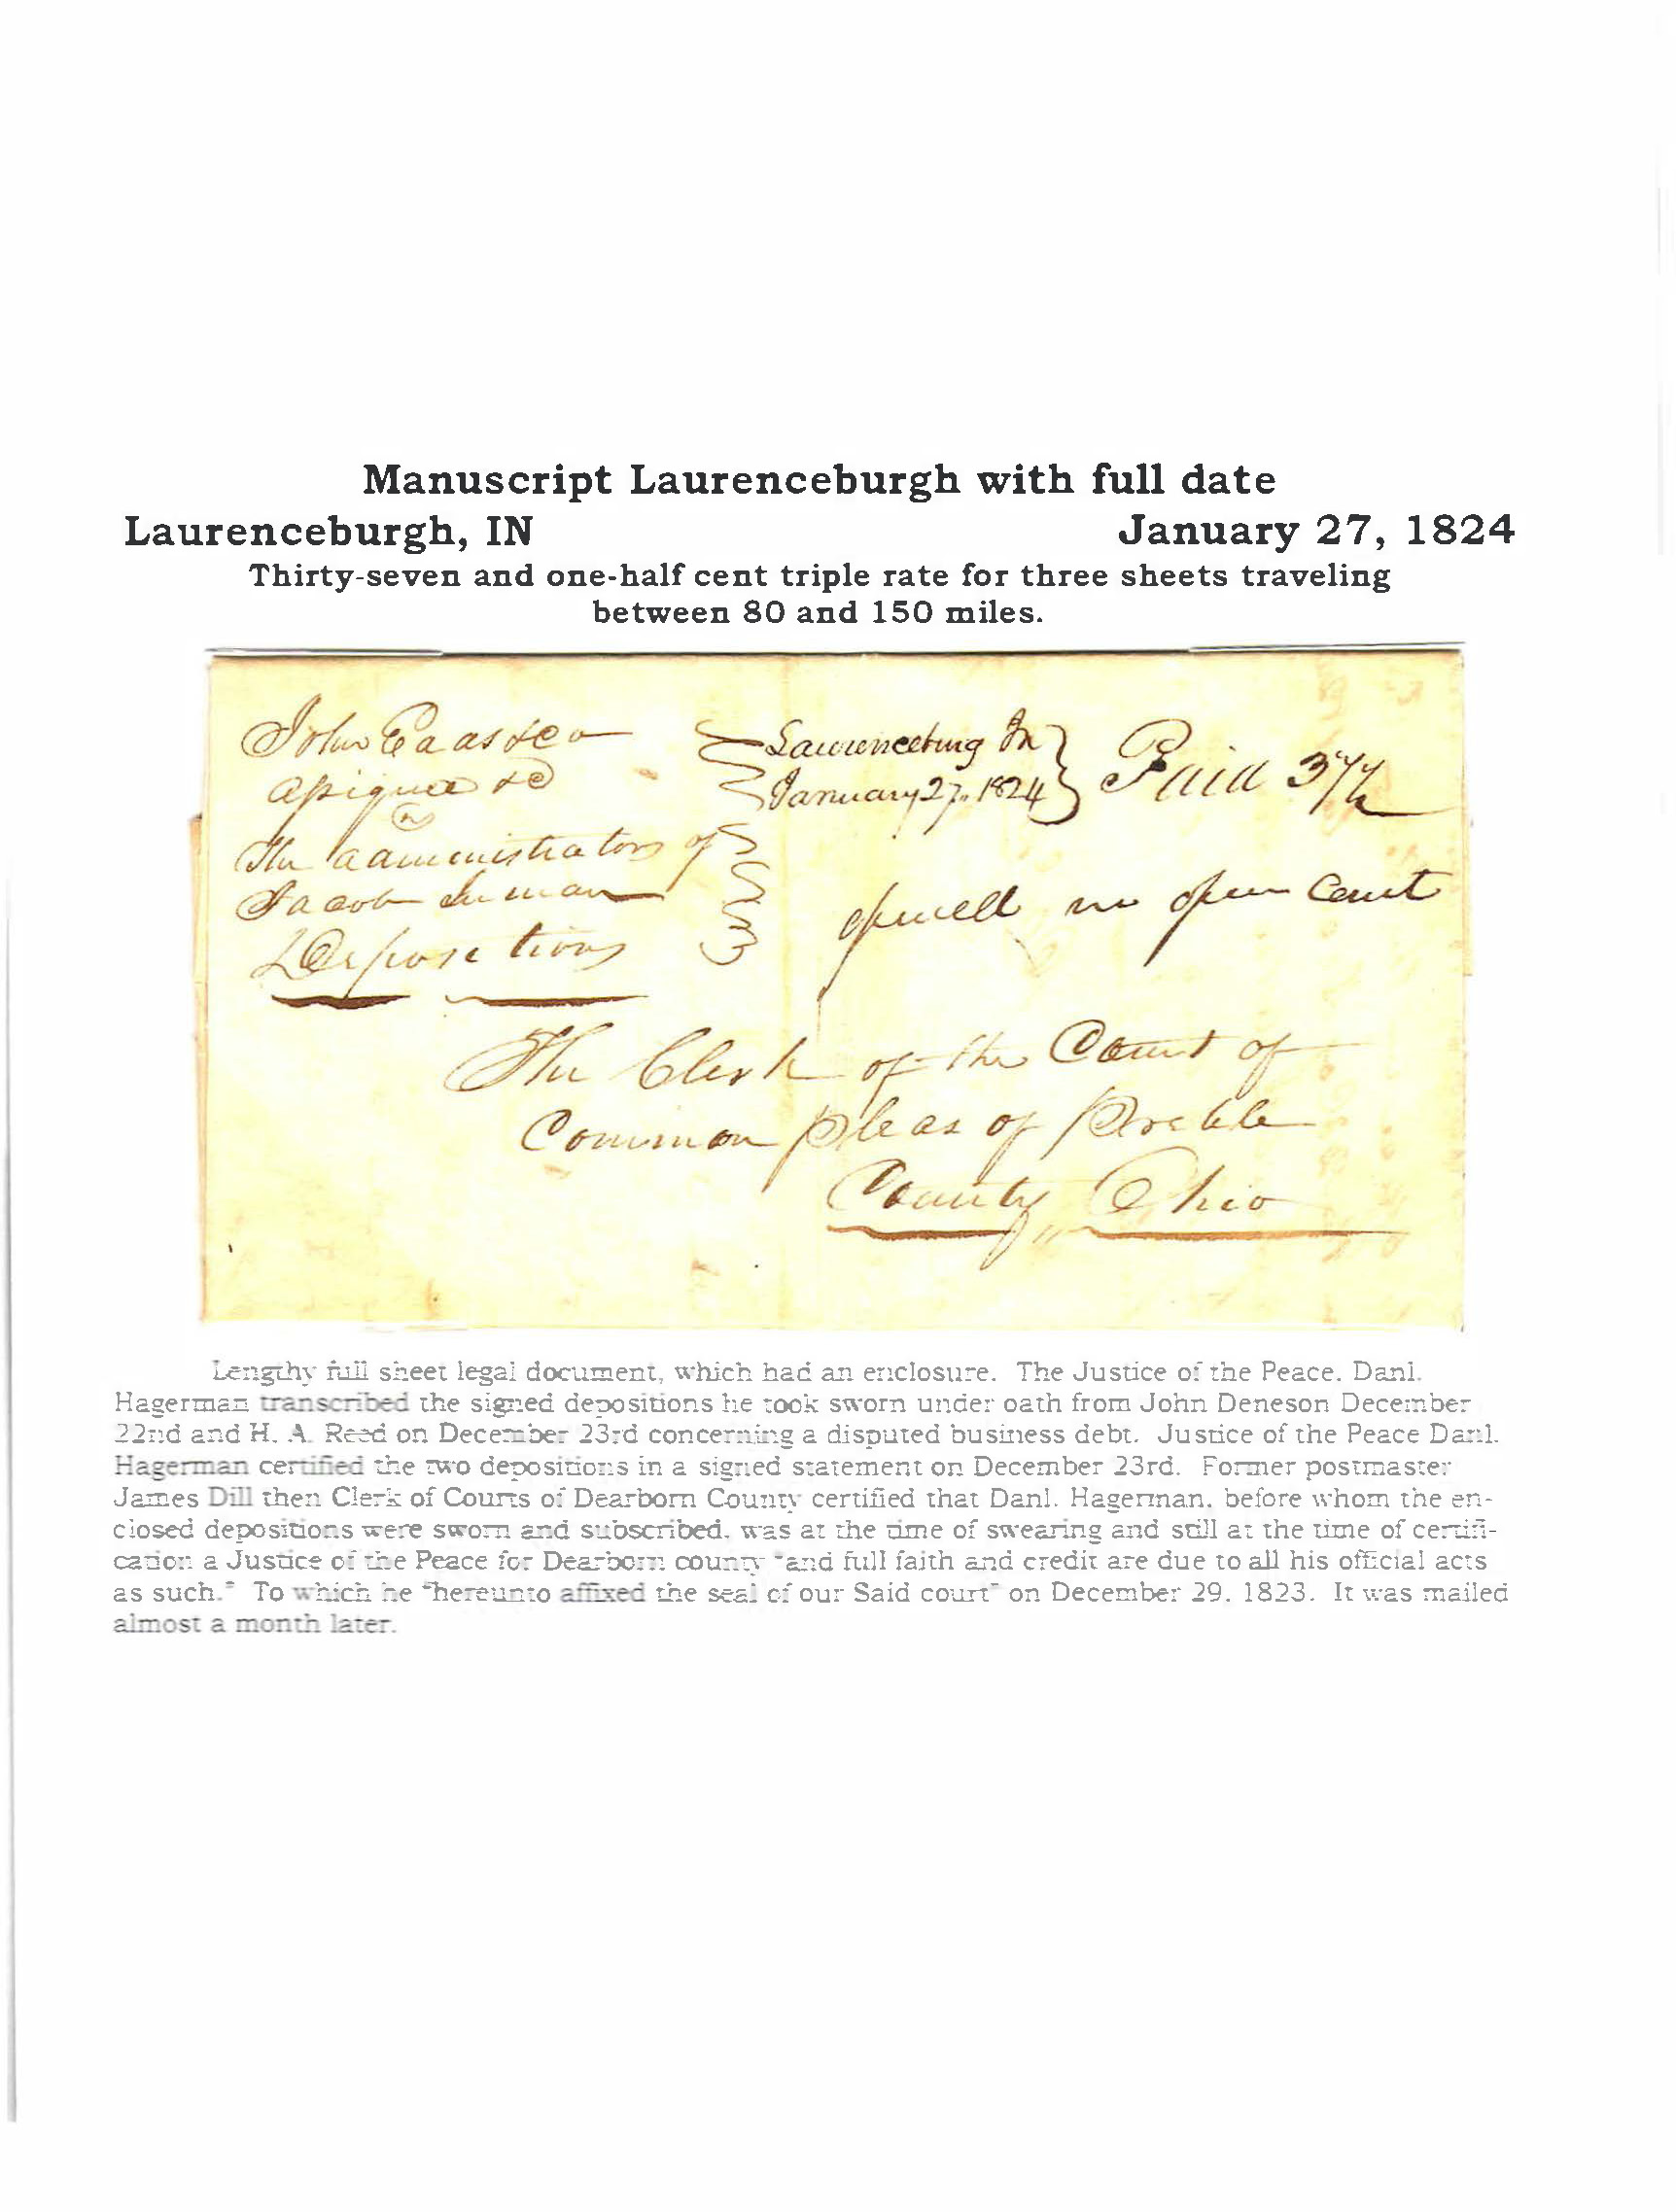 Manuscript Laurenceburgh with full date
Laurenceburgh, IN January 27, 1824
Thirty-seven and one-half cent triple rate for three sheets traveling
between 80 and 150 miles.
John
Laurenceburg In
January 27. 1824
Paid 37½
The administrators of
Jacob
Depositions
open court
The Clerk of the Court of
Common pleas of Preble
County Ohio
Lengthy full sheet legal document, which had an enclosure. The Justice of the Peace, Danl.
Hagerman transcribed the signed depositions he took sworn under oath from John Deneson December
22nd and H. A. Reed on December 23rd concerning a disputed business debt. Justice of the Peace Danl.
Hagerman certified the two depositions in a signed statement on December 23rd. Former postmaster
James Dill then Clerk of Courts of Dearborn County certified that Danl. Hagerman, before whom the en-
closed depositions were sworn and subscribed, was at the time of swearing and still at the time of certifi-
cation a Justice of the Peace for Dearborn county "and full faith and credit are due to all his official acts
as such." To which he "hereunto affixed the seal of our Said court" on December 29, 1823. It was mailed
almost a month later.